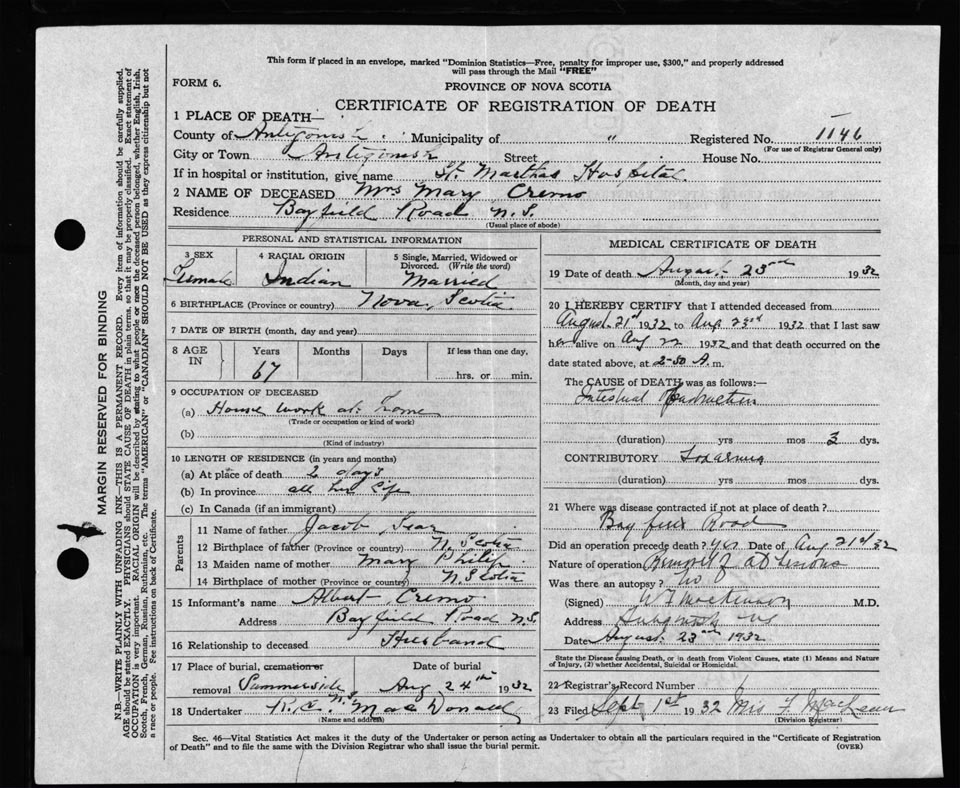 This form if placed in an envelope, marked "Dominion Statistics—Free, penalty for improper use, $300," and properly addressed
will pass through the Mail "FREE"
FORM 6.
PROVINCE OF NOVA SCOTIA
CERTIFICATE OF REGISTRATION OF DEATH
1 PLACE OF DEATH—
County of Antigonish Municipality of " Registered No. 1146
(For use of Registrar General only)
City or Town Antigonish Street House No.
If in hospital or institution, give name St. Marthas Hospital
2 NAME OF DECEASED Mrs Mary Cremo
Residence Bayfield Road N.S.
(Usual place of abode)
PERSONAL AND STATISTICAL INFORMATION
3 SEX Female
4 RACIAL ORIGIN Indian
5 Single, Married, Widowed or Divorced. (Write the word) Married
6 BIRTHPLACE (Province or country) Nova Scotia
7 DATE OF BIRTH (month, day and year)
8 AGE IN Years 67 Months Days If less than one day, hrs. or min.
9 OCCUPATION OF DECEASED
(a) House work at home
(Trade or occupation or kind of work)
(b)
(Kind of industry)
10 LENGTH OF RESIDENCE (in years and months)
(a) At place of death 2 days
(b) In province all her life
(c) In Canada (if an immigrant)
Parents
11 Name of father Jacob
12 Birthplace of father (Province or country) N. Scotia
13 Maiden name of mother Mary Philip
14 Birthplace of mother (Province or country) N. Scotia
15 Informant's name Albert Cremo
Address Bayfield Road N.S.
16 Relationship to deceased Husband
17 Place of burial, cremation or removal Summerside N.S. Date of burial Aug 24th 1932
18 Undertaker R.C. MacDonald
(Name and address)
MEDICAL CERTIFICATE OF DEATH
19 Date of death August 23rd 1932
(Month, day and year)
20 I HEREBY CERTIFY that I attended deceased from
August 21st 1932 to Aug 23rd 1932 that I last saw
her alive on Aug 22 1932 and that death occurred on the
date stated above, at 2-50 A.m.
The CAUSE of DEATH was as follows:—
Intestinal Obstruction
(duration) yrs mos 3 dys.
CONTRIBUTORY Toxaemia
(duration) yrs mos dys.
21 Where was disease contracted if not at place of death?
Bayfield Road
Did an operation precede death? yes Date of Aug 21st/32
Nature of operation Removal of adhesions
Was there an autopsy? No
(Signed) W F MacKinnon M.D.
Address Antigonish NS
Date August 23rd 1932
State the Disease causing Death, or in death from Violent Causes, state (1) Means and Nature
of Injury, (2) whether Accidental, Suicidal or Homicidal.
22 Registrar's Record Number
23 Filed Sept 1st 1932 Mrs F. MacLean
(Division Registrar)
Sec. 46—Vital Statistics Act makes it the duty of the Undertaker or person acting as Undertaker to obtain all the particulars required in the "Certificate of Registration
of Death" and to file the same with the Division Registrar who shall issue the burial permit.
(OVER)
MARGIN RESERVED FOR BINDING
N.B.—WRITE PLAINLY WITH UNFADING INK—THIS IS A PERMANENT RECORD. Every item of information should be carefully supplied.
AGE should be stated EXACTLY. PHYSICIANS should STATE CAUSE OF DEATH in plain terms, so that it may be properly classified. Exact statement of
OCCUPATION is very important. RACIAL ORIGIN will be described by stating to what people or race the deceased person belonged, whether English, Irish,
Scotch, French, German, Russian, Ruthenian, etc. The terms "AMERICAN" or "CANADIAN" SHOULD NOT BE USED as they express citizenship but not
a race or people. See instructions on back of Certificate.